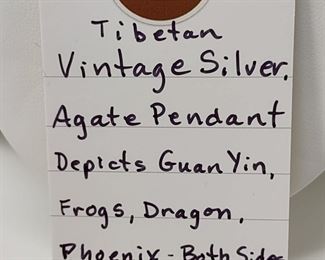 Tibetan
Vintage Silver.
Agate Pendant
Depicts Guan Yin,
Frogs, Dragon,
Phoenix - Both Sides